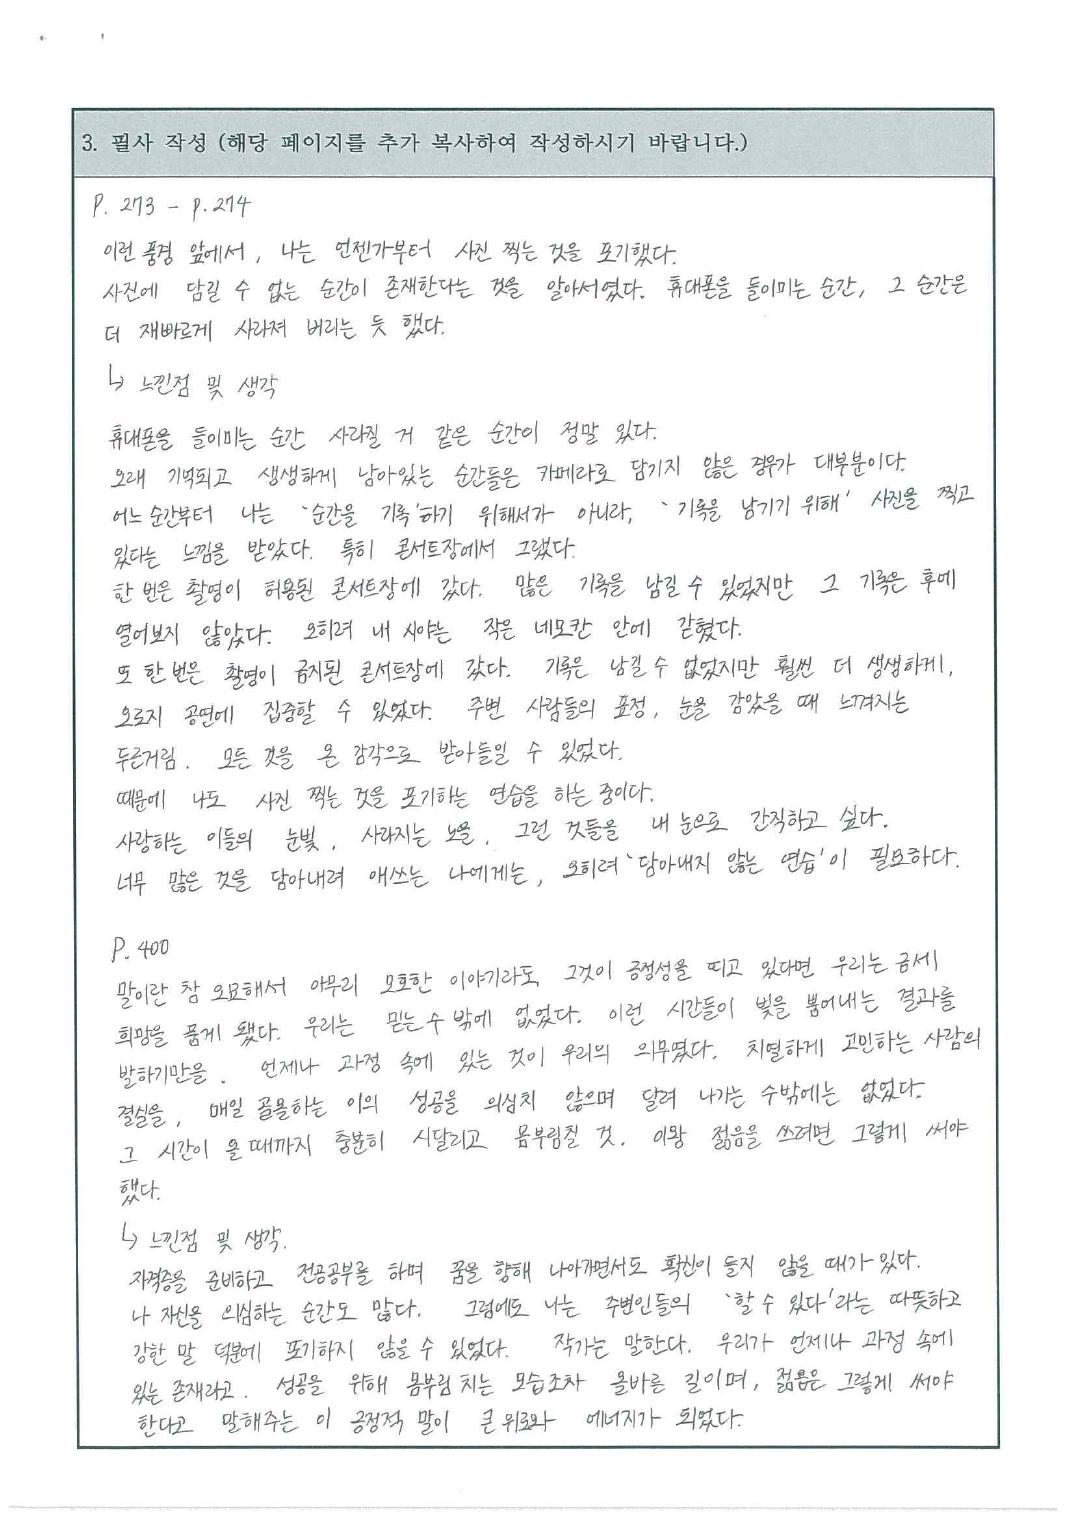 3. 필사 작성 (해당 페이지를 추가 복사하여 작성하시기 바랍니다.)
P. 273 - p.274
이런 풍경 앞에서, 나는 언젠가부터 사진 찍는 것을 포기했다.
사진에 담길 수 없는 순간이 존재한다는 것을 알아서였다. 휴대폰을 들이미는 순간, 그 순간은
더 재빠르게 사라져 버리는 듯 했다.
↳ 느낀점 및 생각
휴대폰을 들이미는 순간 사라질 거 같은 순간이 정말 있다.
오래 기억되고 생생하게 남아있는 순간들은 카메라로 담기지 않은 경우가 대부분이다.
어느 순간부터 나는 '순간을 기록'하기 위해서가 아니라, '기록을 남기기 위해' 사진을 찍고
있다는 느낌을 받았다. 특히 콘서트장에서 그랬다.
한 번은 촬영이 허용된 콘서트장에 갔다. 많은 기록을 남길 수 있었지만 그 기록은 후에
열어보지 않았다. 오히려 내 시야는 작은 네모칸 안에 갇혔다.
또 한 번은 촬영이 금지된 콘서트장에 갔다. 기록은 남길 수 없었지만 훨씬 더 생생하게,
오로지 공연에 집중할 수 있었다. 주변 사람들의 표정, 눈을 감았을 때 느껴지는
두근거림. 모든 것을 온 감각으로 받아들일 수 있었다.
때문에 나도 사진 찍는 것을 포기하는 연습을 하는 중이다.
사랑하는 이들의 눈빛, 사라지는 노을, 그런 것들을 내 눈으로 간직하고 싶다.
너무 많은 것을 담아내려 애쓰는 나에게는, 오히려 '담아내지 않는 연습'이 필요하다.
P. 400
말이란 참 오묘해서 아무리 모호한 이야기라도 그것이 긍정성을 띠고 있다면 우리는 금세
희망을 품게 됐다. 우리는 믿는 수 밖에 없었다. 이런 시간들이 빛을 뿜어내는 결과를
발하기만을. 언제나 과정 속에 있는 것이 우리의 의무였다. 치열하게 고민하는 사람의
결실을, 매일 골몰하는 이의 성공을 의심치 않으며 달려 나가는 수밖에는 없었다.
그 시간이 올 때까지 충분히 시달리고 몸부림칠 것. 이왕 젊음을 쓰려면 그렇게 써야
했다.
↳ 느낀점 및 생각.
자격증을 준비하고 전공공부를 하며 꿈을 향해 나아가면서도 확신이 들지 않을 때가 있다.
나 자신을 의심하는 순간도 많다. 그럼에도 나는 주변인들의 '할 수 있다'라는 따뜻하고
강한 말 덕분에 포기하지 않을 수 있었다. 작가는 말한다. 우리가 언제나 과정 속에
있는 존재라고. 성공을 위해 몸부림 치는 모습조차 올바른 길이며, 젊음은 그렇게 써야
한다고 말해주는 이 긍정적 말이 큰 위로와 에너지가 되었다.